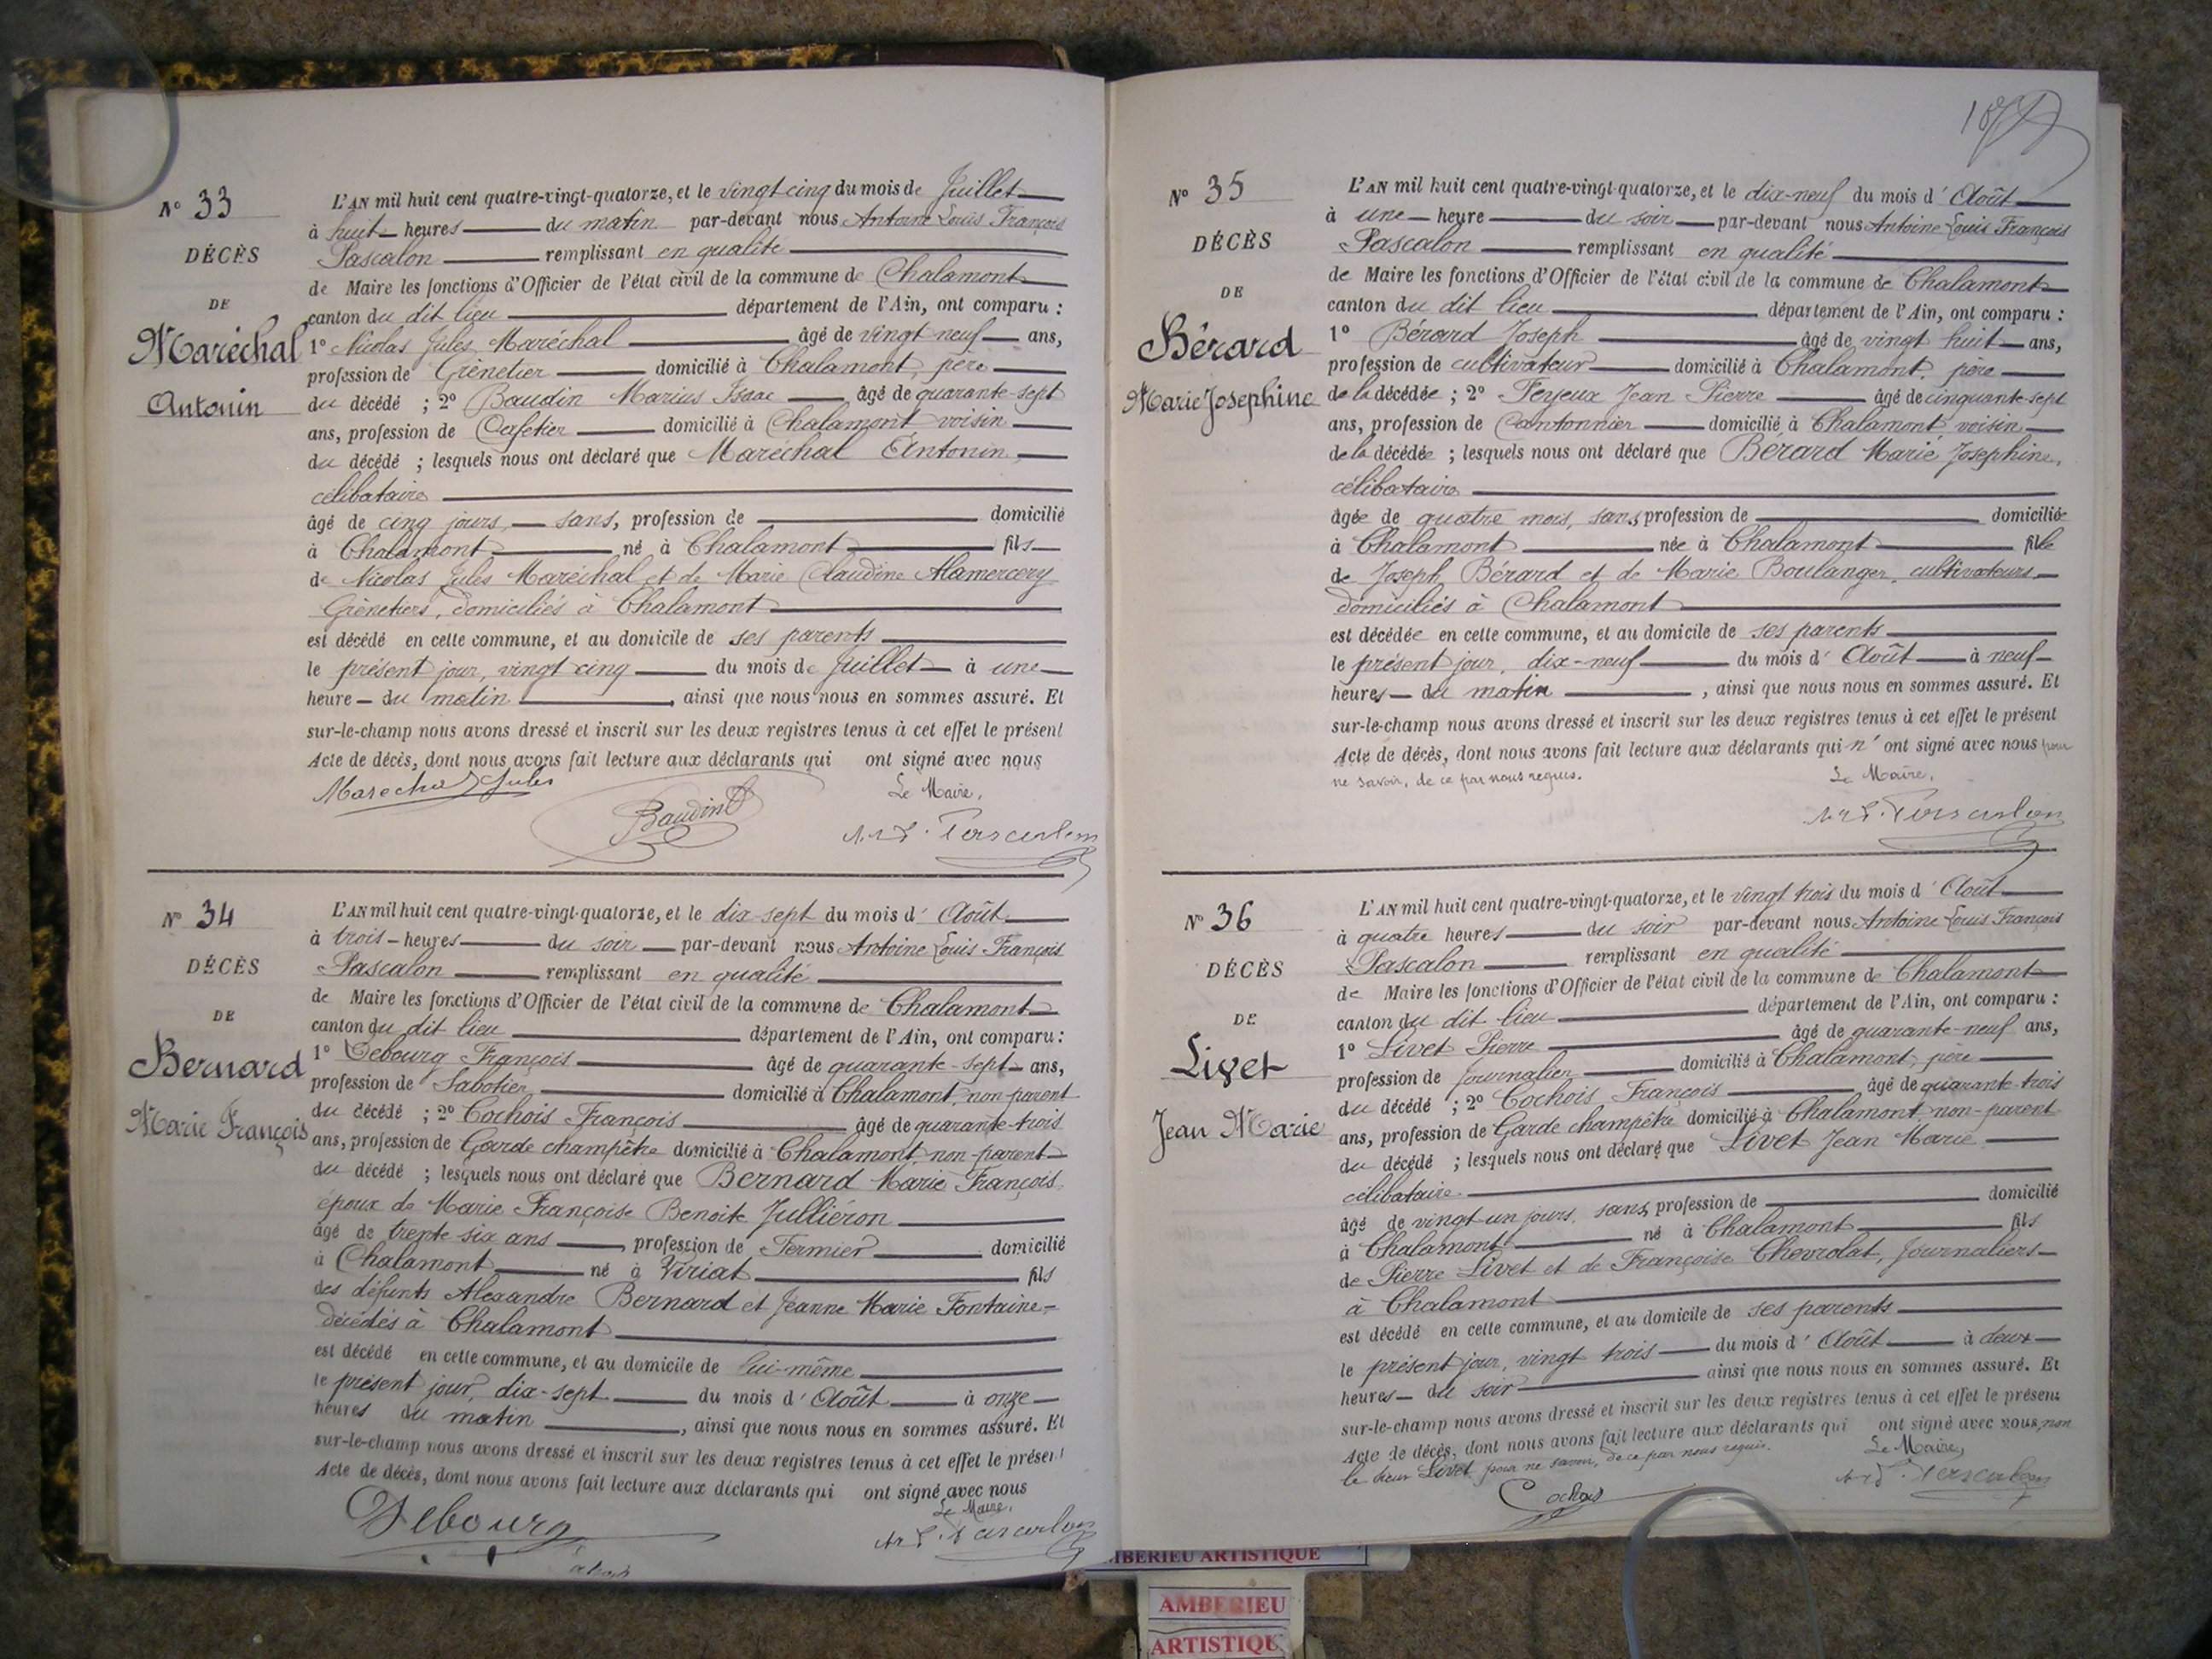 N° 33
DÉCÈS
DE
Maréchal
Antonin
L'AN mil huit cent quatre-vingt-quatorze, et le vingt cinq du mois de Juillet
à huit heures du matin par-devant nous Antoine Louis François
Pascalon remplissant en qualité
de Maire les fonctions d'Officier de l'état civil de la commune de Chalamont
canton du dit lieu département de l'Ain, ont comparu :
1° Nicolas Jules Maréchal âgé de vingt neuf ans,
profession de Grènetier domicilié à Chalamont, père
du décédé ; 2° Baudin Marius Isaac âgé de quarante-sept
ans, profession de Cafetier domicilié à Chalamont voisin
du décédé ; lesquels nous ont déclaré que Maréchal Antonin,
célibataire
âgé de cinq jours, sans, profession de domicilié
à Chalamont, né à Chalamont fils
de Nicolas Jules Maréchal et de Marie Claudine Alamercery
Grènetiers, domiciliés à Chalamont
est décédé en cette commune, et au domicile de ses parents
le présent jour, vingt cinq du mois de Juillet à une
heure du matin, ainsi que nous nous en sommes assuré. Et
sur-le-champ nous avons dressé et inscrit sur les deux registres tenus à cet effet le présent
Acte de décès, dont nous avons fait lecture aux déclarants qui ont signé avec nous
Marechal Jules
Baudin
Le Maire,
A. L. F. Pascalon
N° 34
DÉCÈS
DE
Bernard
Marie François
L'AN mil huit cent quatre-vingt-quatorze, et le dix-sept du mois d' Août
à trois heures du soir par-devant nous Antoine Louis François
Pascalon remplissant en qualité
de Maire les fonctions d'Officier de l'état civil de la commune de Chalamont
canton du dit lieu département de l'Ain, ont comparu :
1° Debourg François âgé de quarante-sept ans,
profession de Sabotier domicilié à Chalamont, non-parent
du décédé ; 2° Cochois François âgé de quarante-trois
ans, profession de Garde champêtre domicilié à Chalamont, non-parent
du décédé ; lesquels nous ont déclaré que Bernard Marie François,
époux de Marie Françoise Benoite Jullieron
âgé de trente six ans, profession de Fermier domicilié
à Chalamont né à Viriat fils
des défunts Alexandre Bernard et Jeanne Marie Fontaine
décédés à Chalamont
est décédé en cette commune, et au domicile de lui-même
le présent jour, dix-sept du mois d' Août à onze
heures du matin, ainsi que nous nous en sommes assuré. Et
sur-le-champ nous avons dressé et inscrit sur les deux registres tenus à cet effet le présent
Acte de décès, dont nous avons fait lecture aux déclarants qui ont signé avec nous
Debourg
Le Maire,
Pascalon
N° 35
DÉCÈS
DE
Bérard
Marie Josephine
L'AN mil huit cent quatre-vingt-quatorze, et le dix-neuf du mois d' Août
à une heure du soir par-devant nous Antoine Louis François
Pascalon remplissant en qualité
de Maire les fonctions d'Officier de l'état civil de la commune de Chalamont
canton du dit lieu département de l'Ain, ont comparu :
1° Bérard Joseph âgé de vingt huit ans,
profession de cultivateur domicilié à Chalamont, père
de la décédée ; 2° Feyeux Jean Pierre âgé de cinquante-sept
ans, profession de Cantonnier domicilié à Chalamont voisin
de la décédée ; lesquels nous ont déclaré que Bérard Marie Josephine,
célibataire
âgée de quatre mois, sans, profession de domiciliée
à Chalamont née à Chalamont fille
de Joseph Bérard et de Marie Boulanger, cultivateurs
domiciliés à Chalamont
est décédée en cette commune, et au domicile de ses parents
le présent jour, dix-neuf du mois d' Août à neuf
heures du matin, ainsi que nous nous en sommes assuré. Et
sur-le-champ nous avons dressé et inscrit sur les deux registres tenus à cet effet le présent
Acte de décès, dont nous avons fait lecture aux déclarants qui n' ont signé avec nous pour
ne savoir, de ce par nous requis.
Le Maire,
A. L. F. Pascalon
N° 36
DÉCÈS
DE
Livet
Jean Marie
L'AN mil huit cent quatre-vingt-quatorze, et le vingt trois du mois d' Août
à quatre heures du soir par-devant nous Antoine Louis François
Pascalon remplissant en qualité
de Maire les fonctions d'Officier de l'état civil de la commune de Chalamont
canton du dit lieu département de l'Ain, ont comparu :
1° Livet Pierre âgé de quarante-neuf ans,
profession de Journalier domicilié à Chalamont, père
du décédé ; 2° Cochois François âgé de quarante-trois
ans, profession de Garde champêtre domicilié à Chalamont non-parent
du décédé ; lesquels nous ont déclaré que Livet Jean Marie
célibataire
âgé de vingt-un jours, sans, profession de domicilié
à Chalamont né à Chalamont fils
de Pierre Livet et de Françoise Chevrolat, Journaliers
à Chalamont
est décédé en cette commune, et au domicile de ses parents
le présent jour, vingt trois du mois d' Août à deux
heures du soir ainsi que nous nous en sommes assuré. Et
sur-le-champ nous avons dressé et inscrit sur les deux registres tenus à cet effet le présent
Acte de décès, dont nous avons fait lecture aux déclarants qui ont signé avec nous, non
le sieur Livet pour ne savoir, de ce par nous requis.
Le Maire,
Cochois
Pascalon
AMBERIEU ARTISTIQUE
AMBERIEU
ARTISTIQU